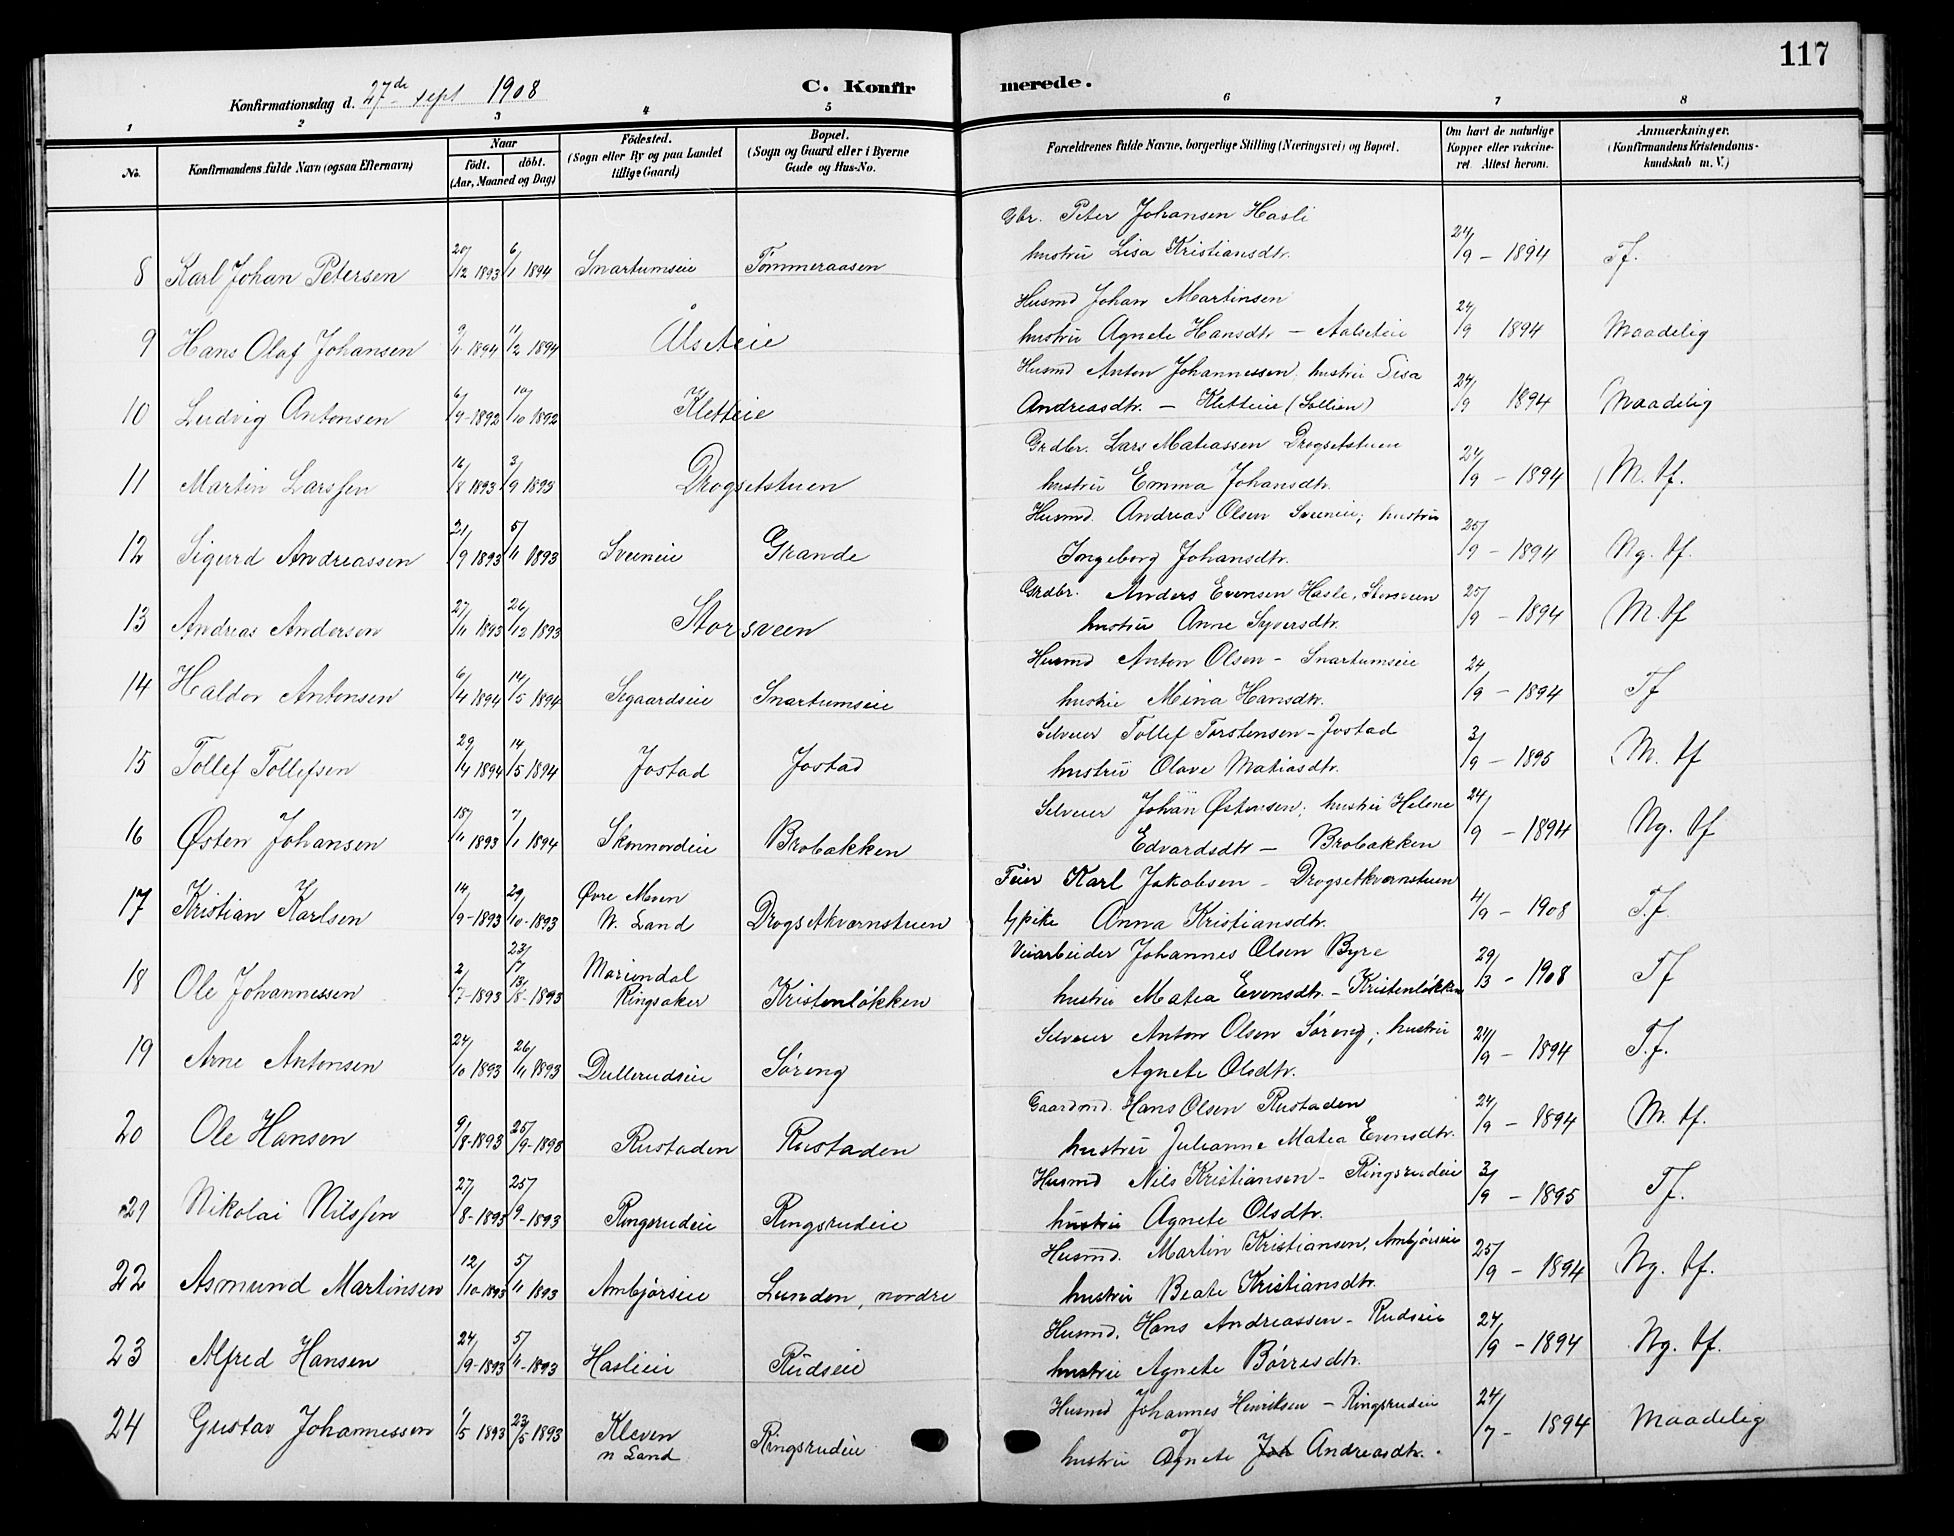 117
Konfirmationsdag d. 27de sept 1908
C. Konfirmerede.
1 2 3 4 5 6 7 8
No. Konfirmandens fulde Navn (ogsaa Efternavn) Naar födt. döbt. (Aar, Maaned og Dag) Födested. (Sogn eller By og paa Landet tillige Gaard) Bopæl. (Sogn og Gaard eller i Byerne Gade og Hus-No. Forældrenes fulde Navne, borgerlige Stilling (Næringsvei) og Bopæl. Om havt de naturlige Kopper eller vakcineret. Attest herom. Anmærkninger. (Konfirmandens Kristendomskundskab m. V.)
Gbr. Peter Johansen Hasli
8 Karl Johan Petersen 20/12 1893 6/1 1894 Snartumseie Tømmeraasen hustru Lisa Kristiansdtr. 24/9 - 1894 Tf.
Husmd Johan Martinsen
9 Hans Olaf Johansen 1894 11/2 1894 Ålseteie hustru Agnete Hansdtr - Aalseteie 24/9 1894 Maadelig
Husmd Anton Johannessen, hustru Lisa
10 Ludvig Antonsen 6/9-1892 10/10 1892 Kletteie Andreasdtr. - Kletteie (Sollien) 24/9 1894 Maadelig
Grdbr. Lars Matiassen Drogsetstuen
11 Martin Larssen 16/8 1893 3/9 1893 Drogsetstuen hustru Emma Johansdtr. 24/9 - 1894 M. tf.
Husmd. Andreas Olsen Sveeneie, hustru
12 Sigurd Andreassen 21/9 1893 5/11 1893 Sveeneie Grande Ingeborg Johansdtr. 25/9 - 1894 Ng. tf.
Grdbr. Anders Evensen Hasle, Storsveen
13 Andreas Andersen 27/11 1893 26/12 1893 Storsveen hustru Anne Syversdtr. 25/9 - 1894 M. tf
Husmd Anton Olsen - Snartumseie
14 Haldor Antonsen 6/4 1894 14/5 1894 Segaardseie Snartumseie hustru Mina Hansdtr. 24/9 - 1894 Tf
Selveier Tollef Torstensen - Jostad
15 Tollef Tollefsen 29/4 1894 14/5 1894 Jostad Jostad hustru Olave Matiasdtr. 3/9 - 1895 M. tf
Selveier Johan Østensen; hustru Helene
16 Østen Johansen 18/11 1893 7/1 1894 Skonnordeie Brobakken Edvardsdtr - Brobakken 24/9 - 1894 Ng. tf
Feier Karl Jakobsen - Drogsetkvernstuen
17 Kristian Karlsen 14/9-1893 29/10-1893 Øvre Moen N. Land Drogsetkvernstuen pike Anna Kristiansdtr. 4/9 - 1908 T.f.
Veiarbeider Johannes Olsen Byre
18 Ole Johannessen 2/7-1893 23/7 13/8-1893 Mariendal Ringsaker Kristenløkken hustru Matea Evensdtr. - Kristenløkken 29/3 - 1908 Tf
Selveier Anton Olsen Søreng; hustru
19 Arne Antonsen 24/10 1893 26/11 1893 Dullerudseie Søreng Agnete Olsdtr. 24/9 - 1894 T.f.
Gaardmd. Hans Olsen Rustaden
20 Ole Hansen 9/8-1893 25/9-1893 Rustaden Rustaden hustru Julianne Matea Evensdtr. 24/9 - 1894 M. tf.
Husmd Nils Kristiansen - Ringsrudeie
21 Nikolai Nilssen 27/8-1893 25/9-1893 Ringsrudeie Ringsrudeie hustru Agnete Olsdtr. 3/9 - 1895 Tf.
Husmd. Martin Kristiansen, Ambjørseie
22 Asmund Martinsen 12/10 1893 5/11 1893 Ambjørseie Lunden, nordre hustru Beate Kristiansdtr. 25/9 - 1894 Ng. tf.
Husmd. Hans Andreassen - Rudseie
23 Alfred Hansen 24/9-1893 5/11-1893 Haslieie Rudseie hustru Agnete Børresdtr. 24/9 - 1894 Ng. tf.
Husmd Johannes Henriksen - Ringsrudeie
24 Gustav Johannessen 1/5 1893 23/5-1893 Kleven n Land Ringsrudeie og hustru Agnete Joh Andreasdtr. 24/7 - 1894 Maadelig